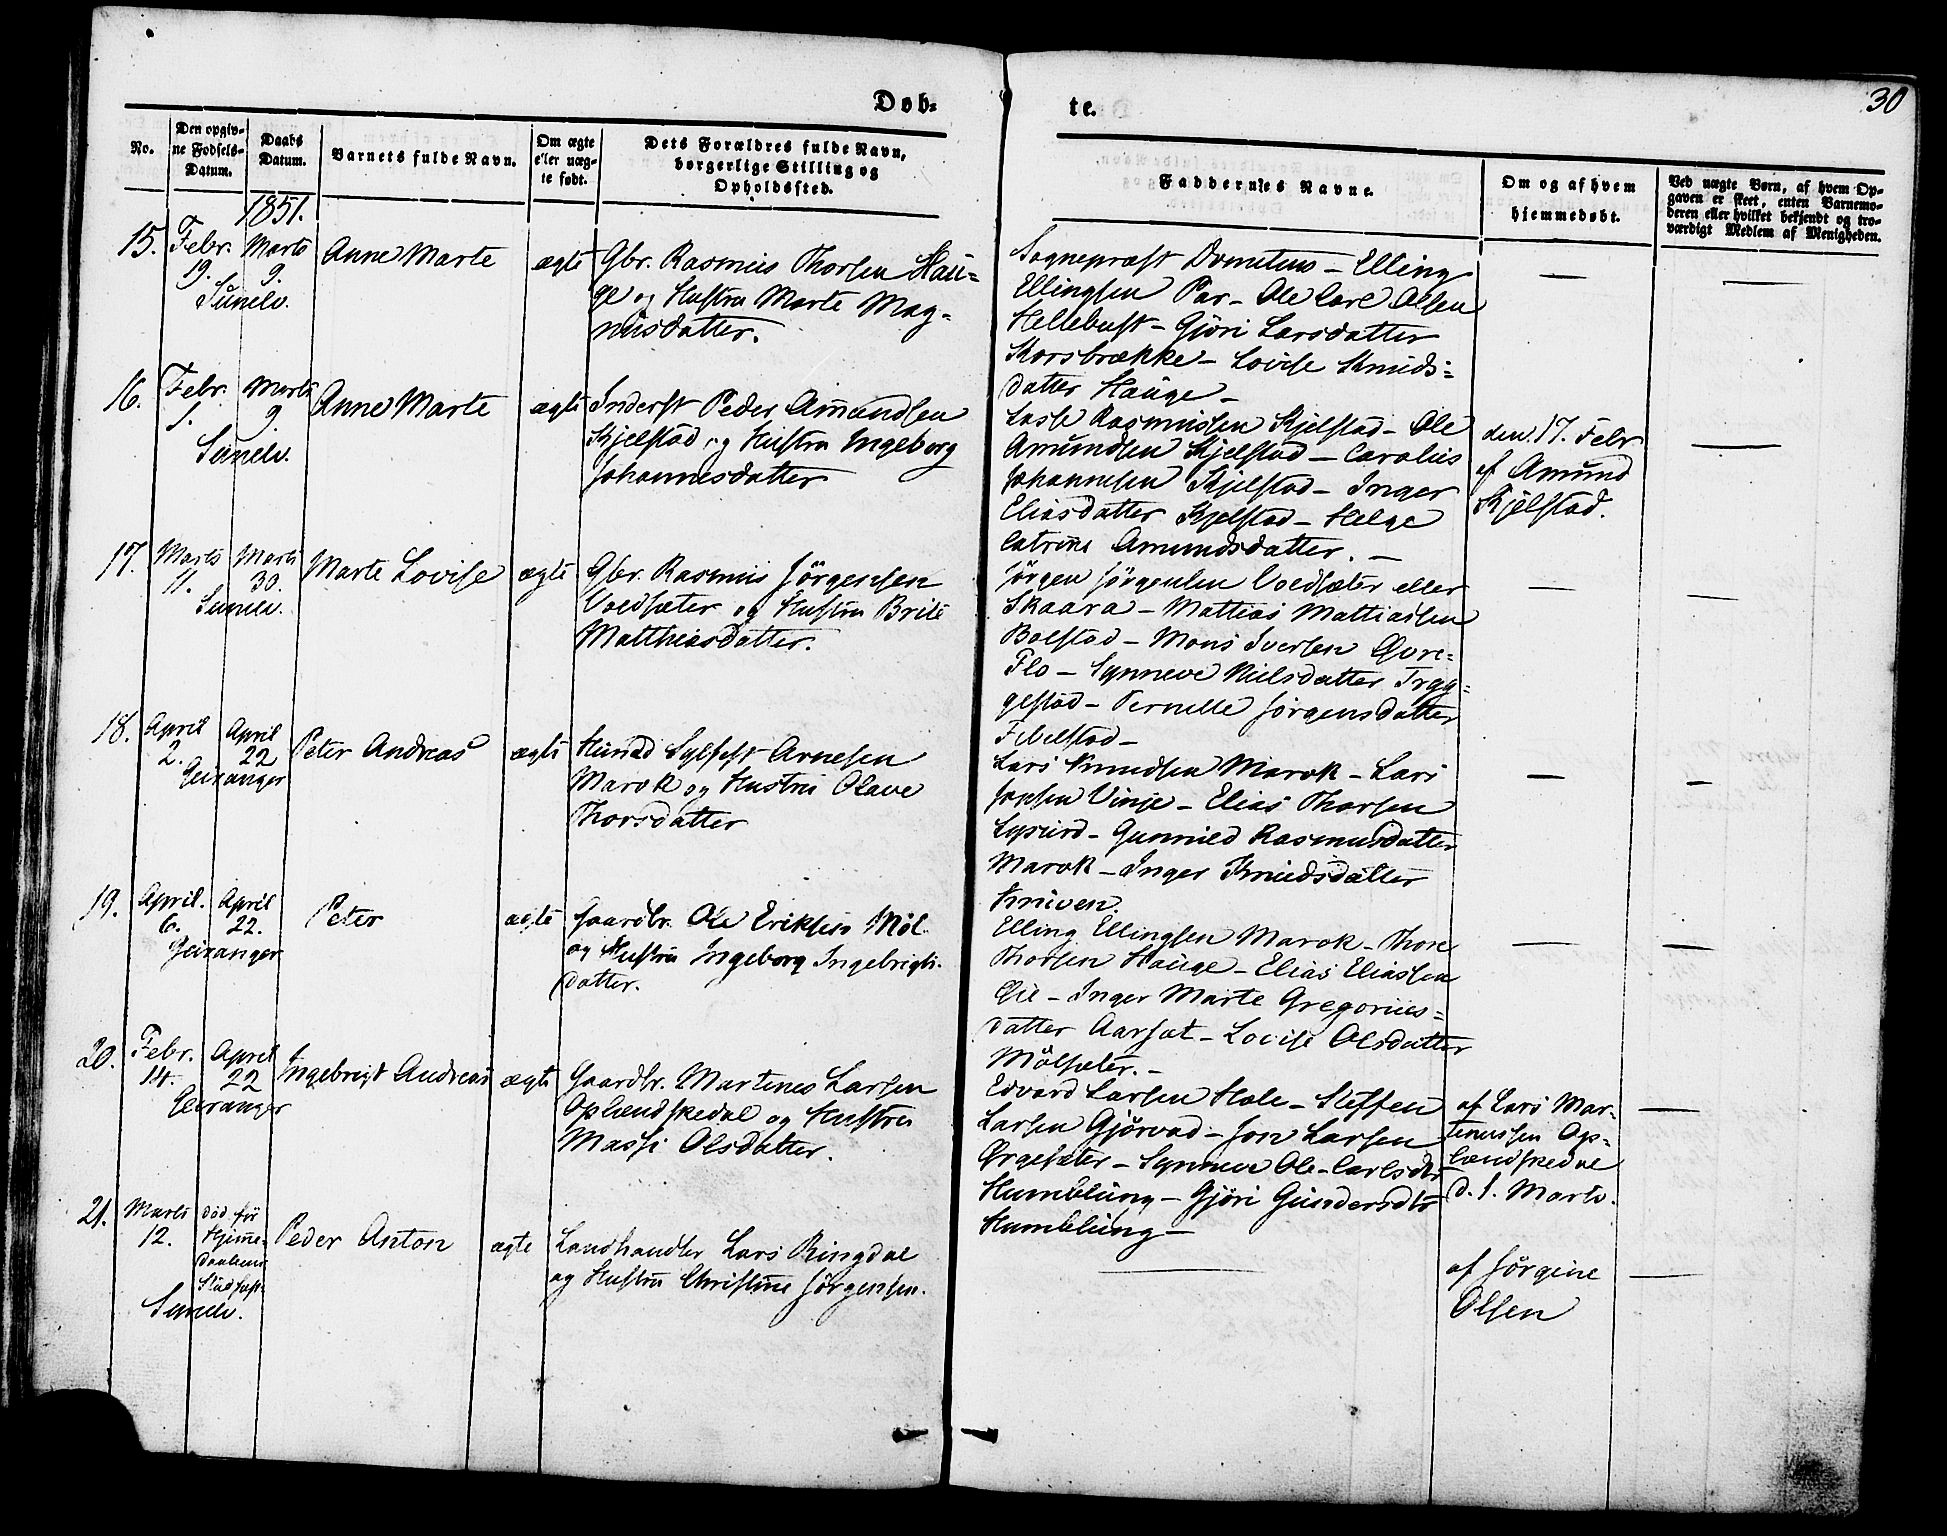 Døb=
te.
30
No.
Den opgiv=
ne Fødsels=
Datum.
Daabs
Datum.
Barnets fulde Navn.
Om ægte
eller uæg=
te født.
Dets Forældres fulde Navn,
borgerlige Stilling og
Opholdssted.
Faddernes Navne.
Om og af hvem
hjemmedøbt.
Ved uægte Børn, af hvem Op=
gaven er skeet, enten Barnemo=
deren eller hvilket bekjendt og tro=
værdigt Medlem af Menigheden.
1851.
15.
Febr.
19.
Marts
9.
Sunelv.
Anne Marte
ægte
Gbr. Rasmus Thorsen Hau=
ge og Hustru Marte Mag=
nusdatter.
Sognepræst Dometius - Elling
Ellingsen Par - Ole Carl Olsen
Hellebust - Gjöri Larsdatter
Korsbrække - Lovise Knuds=
datter Hauge -
—
—
16.
Febr.
1.
Marts
9
Sunelv.
Anne Marte
ægte
Inderst Peder Amundsen
Kjelstad og Hustru Ingeborg
Johannesdatter
Lasse Rasmussen Kjelstad - Ole
Amundsen Kjelstad - Carolus
Johannesen Kjelstad - Inger
Eliasdatter Kjelstad - Helge
Catrine Amundsdatter. -
den 17. Febr
af Amund
Kjelstad.
—
17.
Marts
11.
Marts
30.
Sunelv.
Marte Lovise
ægte
Gbr. Rasmus Jörgensen
Voldsæter og Hustru Brite
Matthiasdatter.
Jörgen Jörgensen Voldsæter eller
Skaara - Mattias Mattiassen
Bolstad - Mons Iversen Gvre=
Flo - Synneve Nielsdatter Tryg=
gestad - Pernelle Jörgensdatter
Fivelstad -
—
—
18.
April
2.
April
22
Geiranger
Peter Andreas
ægte
Husmd Sylfest Arnesen
Marok og Hustru Olave
Thorsdatter
Lars Knudsen Marok - Lars
Jonsen Vinje - Elias Thorsen
- Gunnild Rasmusdatter
Marok - Inger Knudsdatter
Kniven.
—
—
19.
April.
6.
April
22.
Geiranger
Peter
ægte
Gaardbr. Ole Eriksen Möl
og Hustru Ingeborg Ingebrigts.
datter.
Elling Ellingsen Marok - Thore
Thorsen Hauge - Elias Eliassen
Gie - Inger Marte Gregorius=
datter Aarsæt - Lovise Olsdatter
Mölsæter. -
—
—
20.
Febr.
14.
April
22
Geiranger
Ingebrigt Andreas
ægte
Gaardbr. Martines Larsen
Oplændskedal og Hustru
Massi Olsdatter.
Edvard Larsen Hole - Steffen
Larsen Gjörvad - Jon Larsen
Ørgesæter - Synneve Ole-Carlsdtr
Humblung - Gjöri Gundersdtr
Humblung -
af Lars Mar-
tinussen Op-
lændskedal
d. 1. Marts.
—
21.
Marts
12.
död för
Hjemme-
daabens
Stadfæst.
Sunelv.
Peder Anton
ægte
Landhandler Lars Ringdal
og Hustru Christine Jörgensen.
—
af Jörgine
Olsen
—